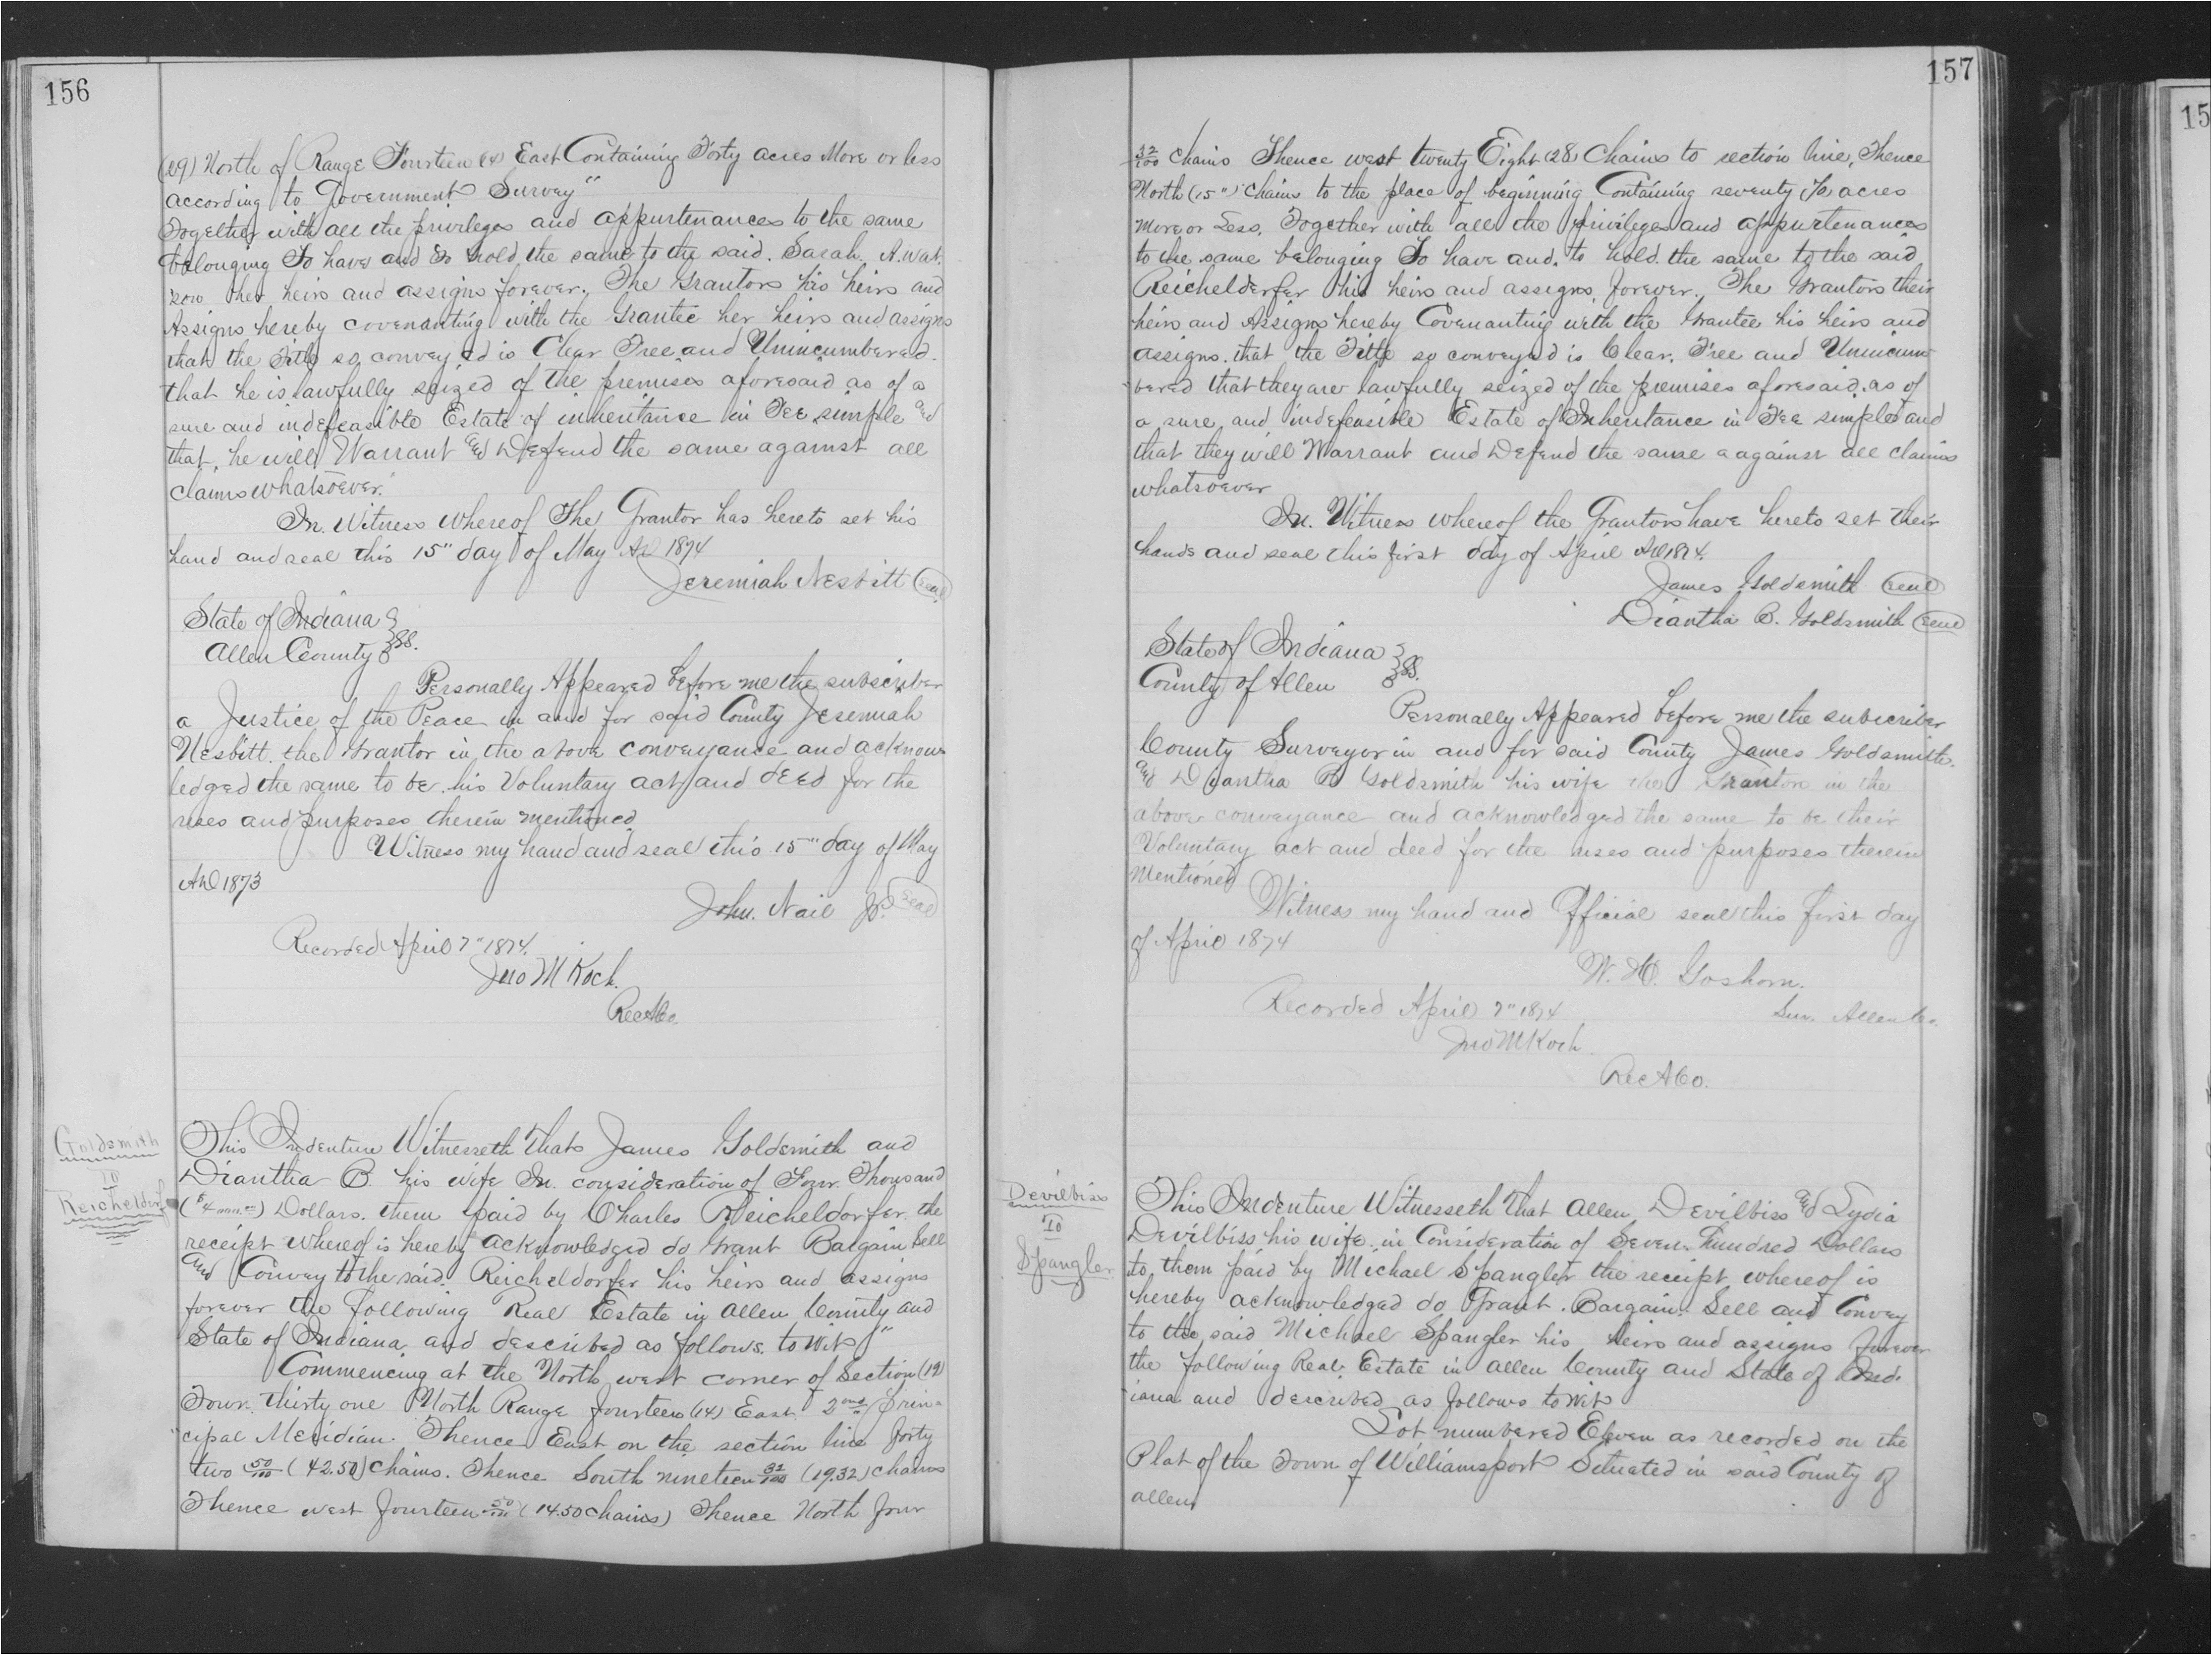 156
(29) North of Range Fourteen (14) East Containing Forty acres More or less
according to Government Survey"
Together with all the privileges and appurtenances to the same
belonging To have and to hold the same to the said. Sarah. A. Wat.
son her heirs and assigns forever. The Grantors his heirs and
Assigns hereby covenanting with the Grantee her heirs and assigns
that the Title so conveyed is Clear Free and Unincumbered.
that he is lawfully seized of the premises aforesaid as of a
sure and indefeasible Estate of inheritance in Fee simple and
that, he will Warrant and Defend the same against all
claims whatsoever.
In. Witness whereof The Grantor has hereto set his
hand and seal this 15" day of May AD 1874
Jeremiah Nesbitt (seal)
State of Indiana
Allen County SS.
Personally Appeared before me the subscriber
a Justice of the Peace in and for said County Jeremiah
Nesbitt. the Grantor in the above conveyance and acknow
ledged the same to be his Voluntary act and deed for the
uses and purposes therein mentioned
Witness my hand and seal this 15" day of May
AD 1873
John. Nail JP. (seal)
Recorded April 7" 1874.
Jno M Koch.
Rec A Co.
Goldsmith
TO
Reicheldorf
This Indenture Witnesseth That James Goldsmith and
Diantha B. his wife In. consideration of Four Thousand
Dollars. them paid by Charles Reicheldorfer. the
receipt whereof is hereby acknowledged do Grant Bargain Sell
and Convey to the said. Reicheldorfer his heirs and assigns
forever the following Real Estate in Allen County and
State of Indiana and described as follows. to wit"
Commencing at the North west corner of Section (19)
Town. thirty one North Range fourteen (14) East. 2nd Prin-
cipal Meridian. Thence East on the section line forty
two 50/100 (42.50) chains. Thence South nineteen 32/100 (19.32) chains
Thence west fourteen 50/100 (14.50 chains) Thence North four
157
32/100 chains Thence west twenty Eight (28) Chains to section line, Thence
North (15") chains to the place of beginning Containing seventy (70) acres
more or Less, Together with all the privileges and appurtenances
to the same belonging To have and. to hold. the same to the said
Reichelderfer his heirs and assigns, forever. The Grantors their
heirs and Assigns hereby Covenanting with the Grantee his heirs and
assigns. that the Title so conveyed is Clear. Free and Unincum
bered that they are lawfully seized of the premises aforesaid. as of
a sure and indefeasible Estate of Inheritance in Fee simple and
that they will Warrant and Defend the same a against all claims
whatsoever
In. Witness whereof the Grantors have hereto set their
hands and seal this first day of April AD 1874.
James Goldsmith (seal)
Diantha B. Goldsmith (seal)
State of Indiana
County of Allen SS.
Personally Appeared before me the subscriber
County Surveyor in and for said County James Goldsmith.
and Diantha B Goldsmith his wife the Grantors in the
above conveyance and acknowledged the same to be their
Voluntary act and deed for the uses and purposes therein
mentioned
Witness my hand and Official seal this first day
of April 1874
W. H. Goshorn.
Sur. Allen Co.
Recorded April 7" 1874
Jno M Koch
Rec A Co.
Devilbiss
TO
Spangler
This Indenture Witnesseth That Allen Devilbiss and Lydia
Devilbiss his wife. in Consideration of Seven Hundred Dollars
to them paid by Michael Spangler the receipt whereof is
hereby acknowledged do Grant. Bargain. Sell and Convey
to the said Michael Spangler his heirs and assigns forever
the following Real. Estate in Allen County and State of Ind.
iana and described as follows to wit
Lot numbered Eleven as recorded on the
Plat of the Town of Williamsport Situated in said County of
allen
15